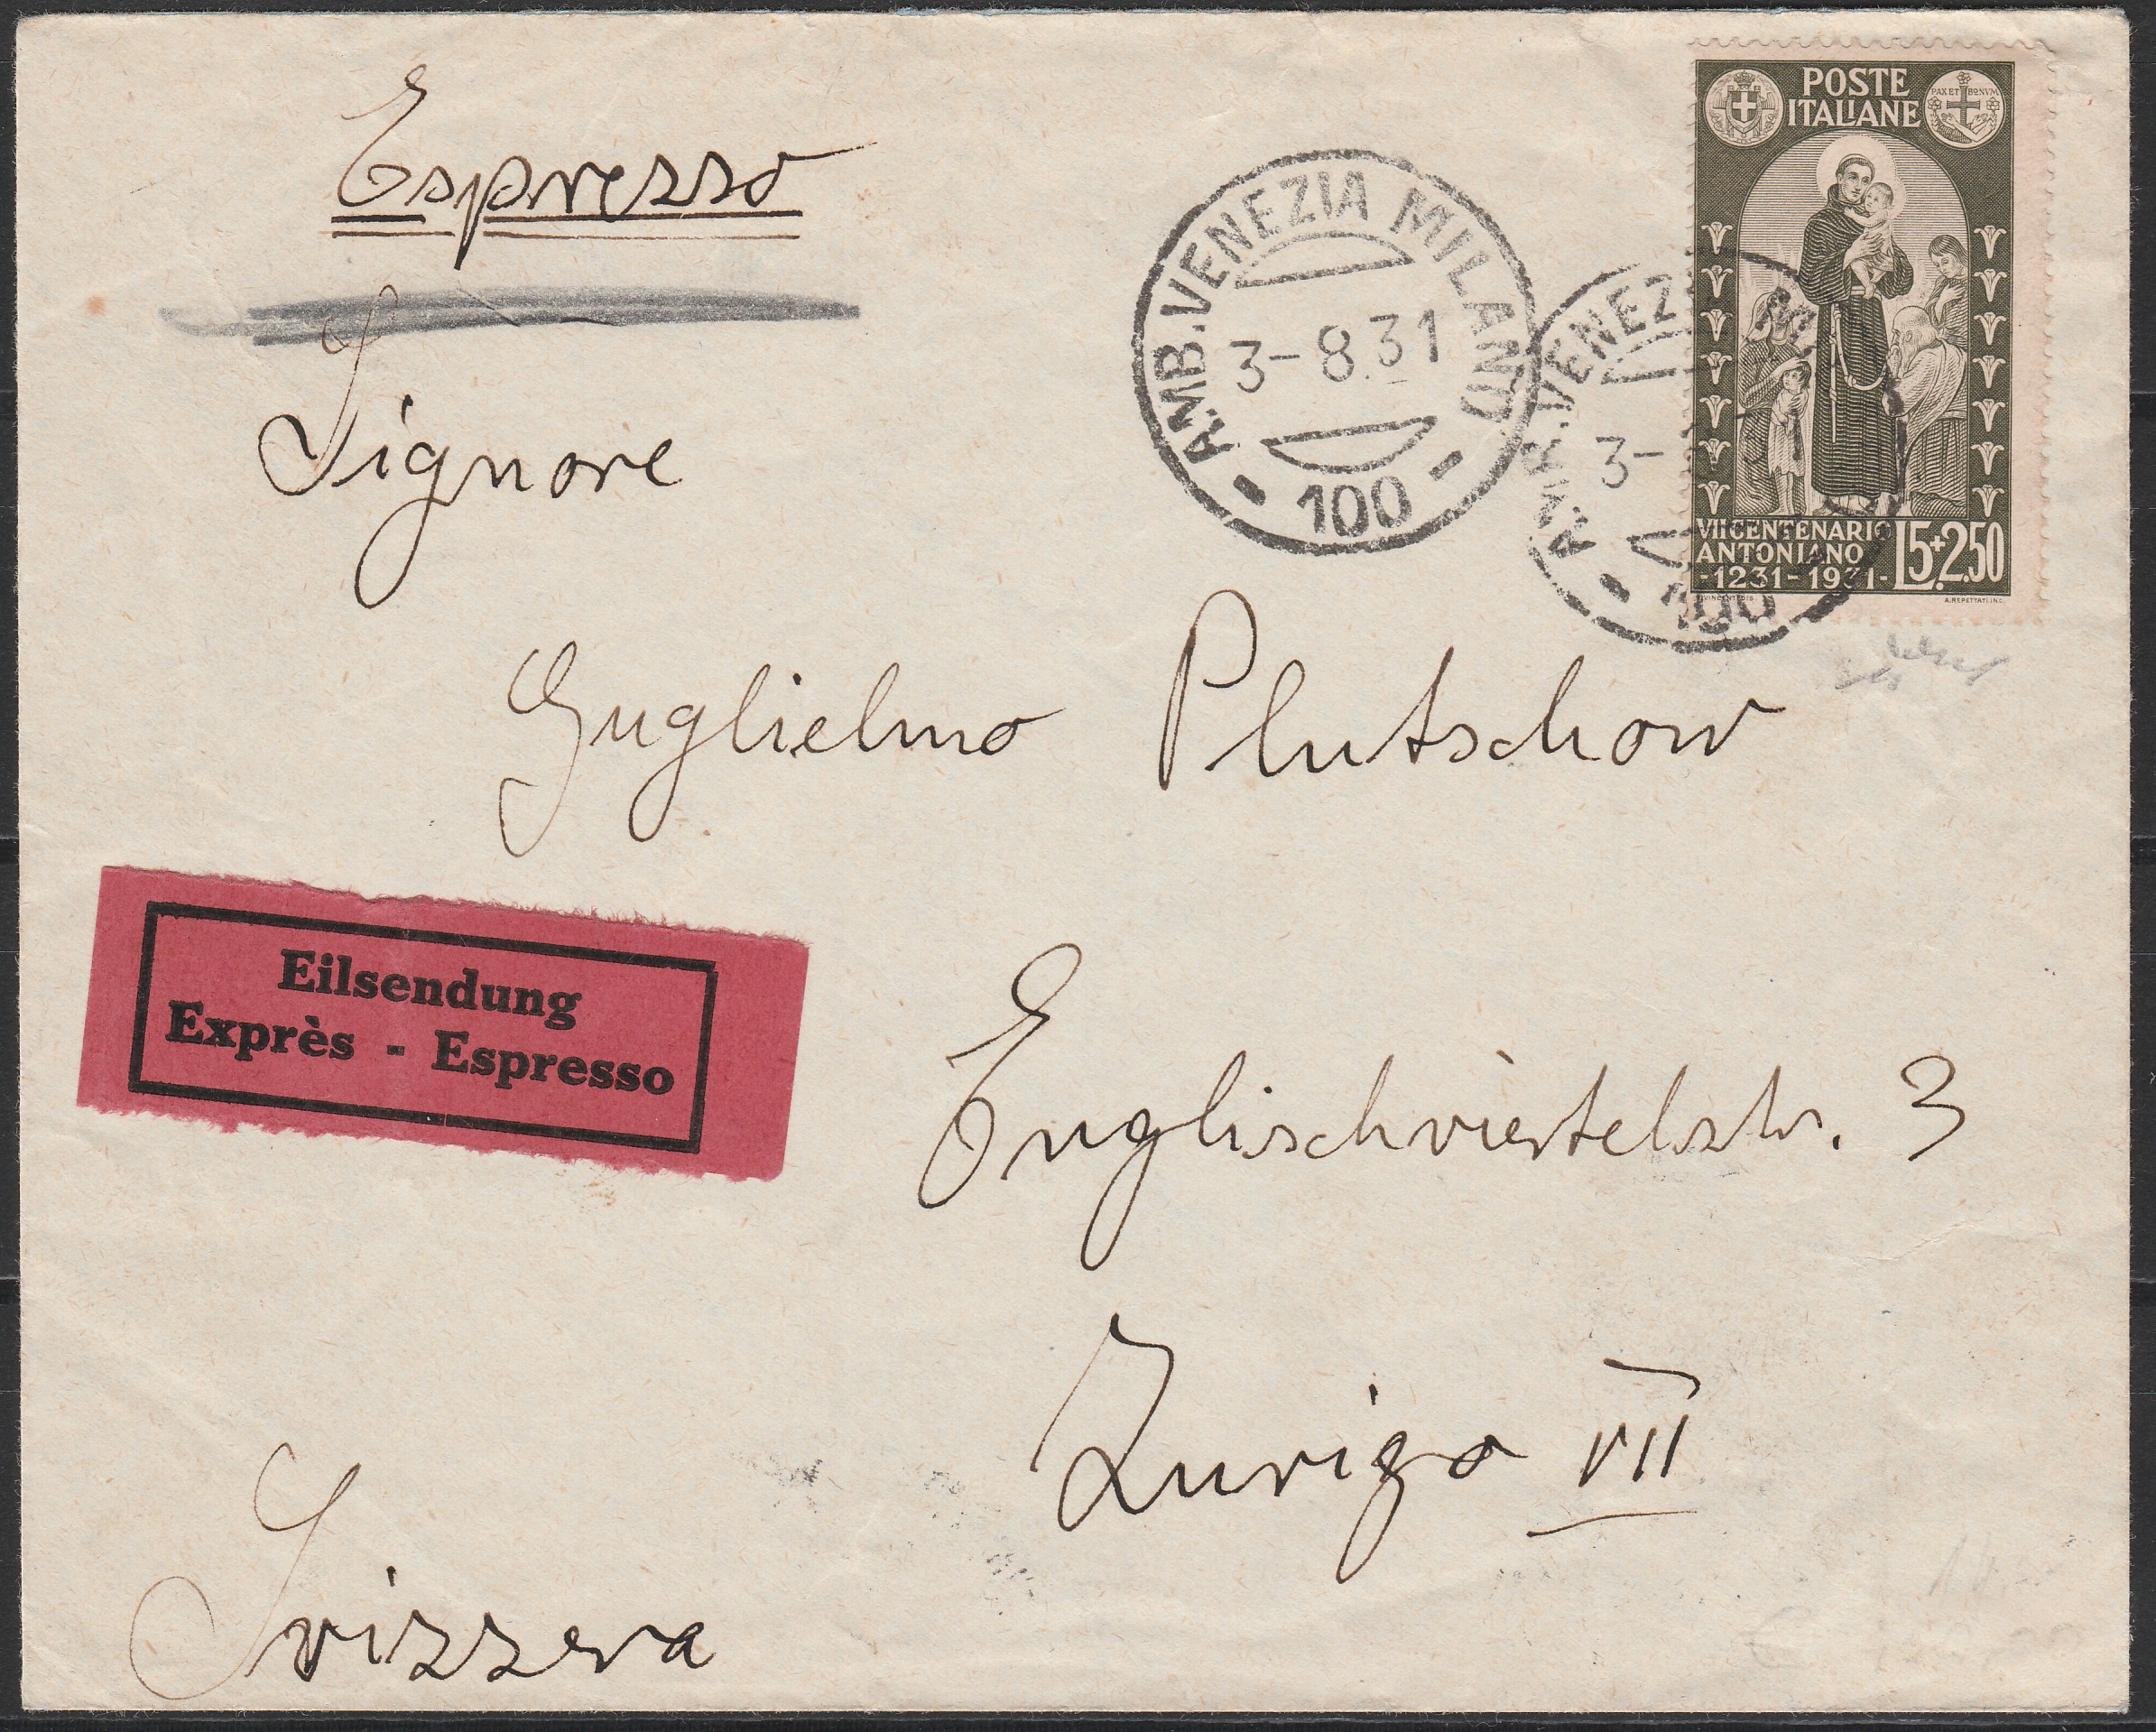 Espresso
Signore
Guglielmo Plutschow
Englischviertelstr. 3
Zurigo VII
Svizzera
Eilsendung
Exprès - Espresso
AMB. VENEZIA MILANO
3-8.31
100
AMB. VENEZIA M
3-
100
POSTE
ITALIANE
PAX ET BONVM
VII CENTENARIO
ANTONIANO
-1231-1931-
L5+2.50
A. REPETTATI. INC.